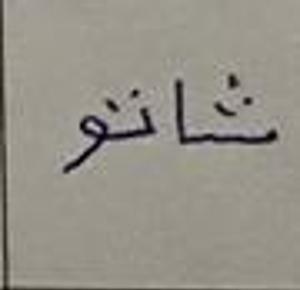 شانتو